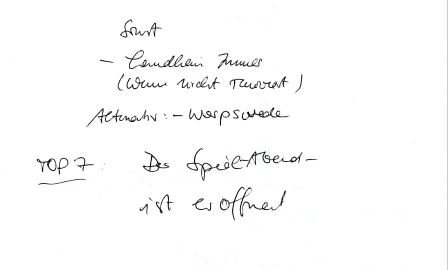 Sonst
- Landheim Immer
(Wenn nicht zu
Alternativ: - Worpswede
TOP 7: Der Spiel-Abend -
ist eröffnet